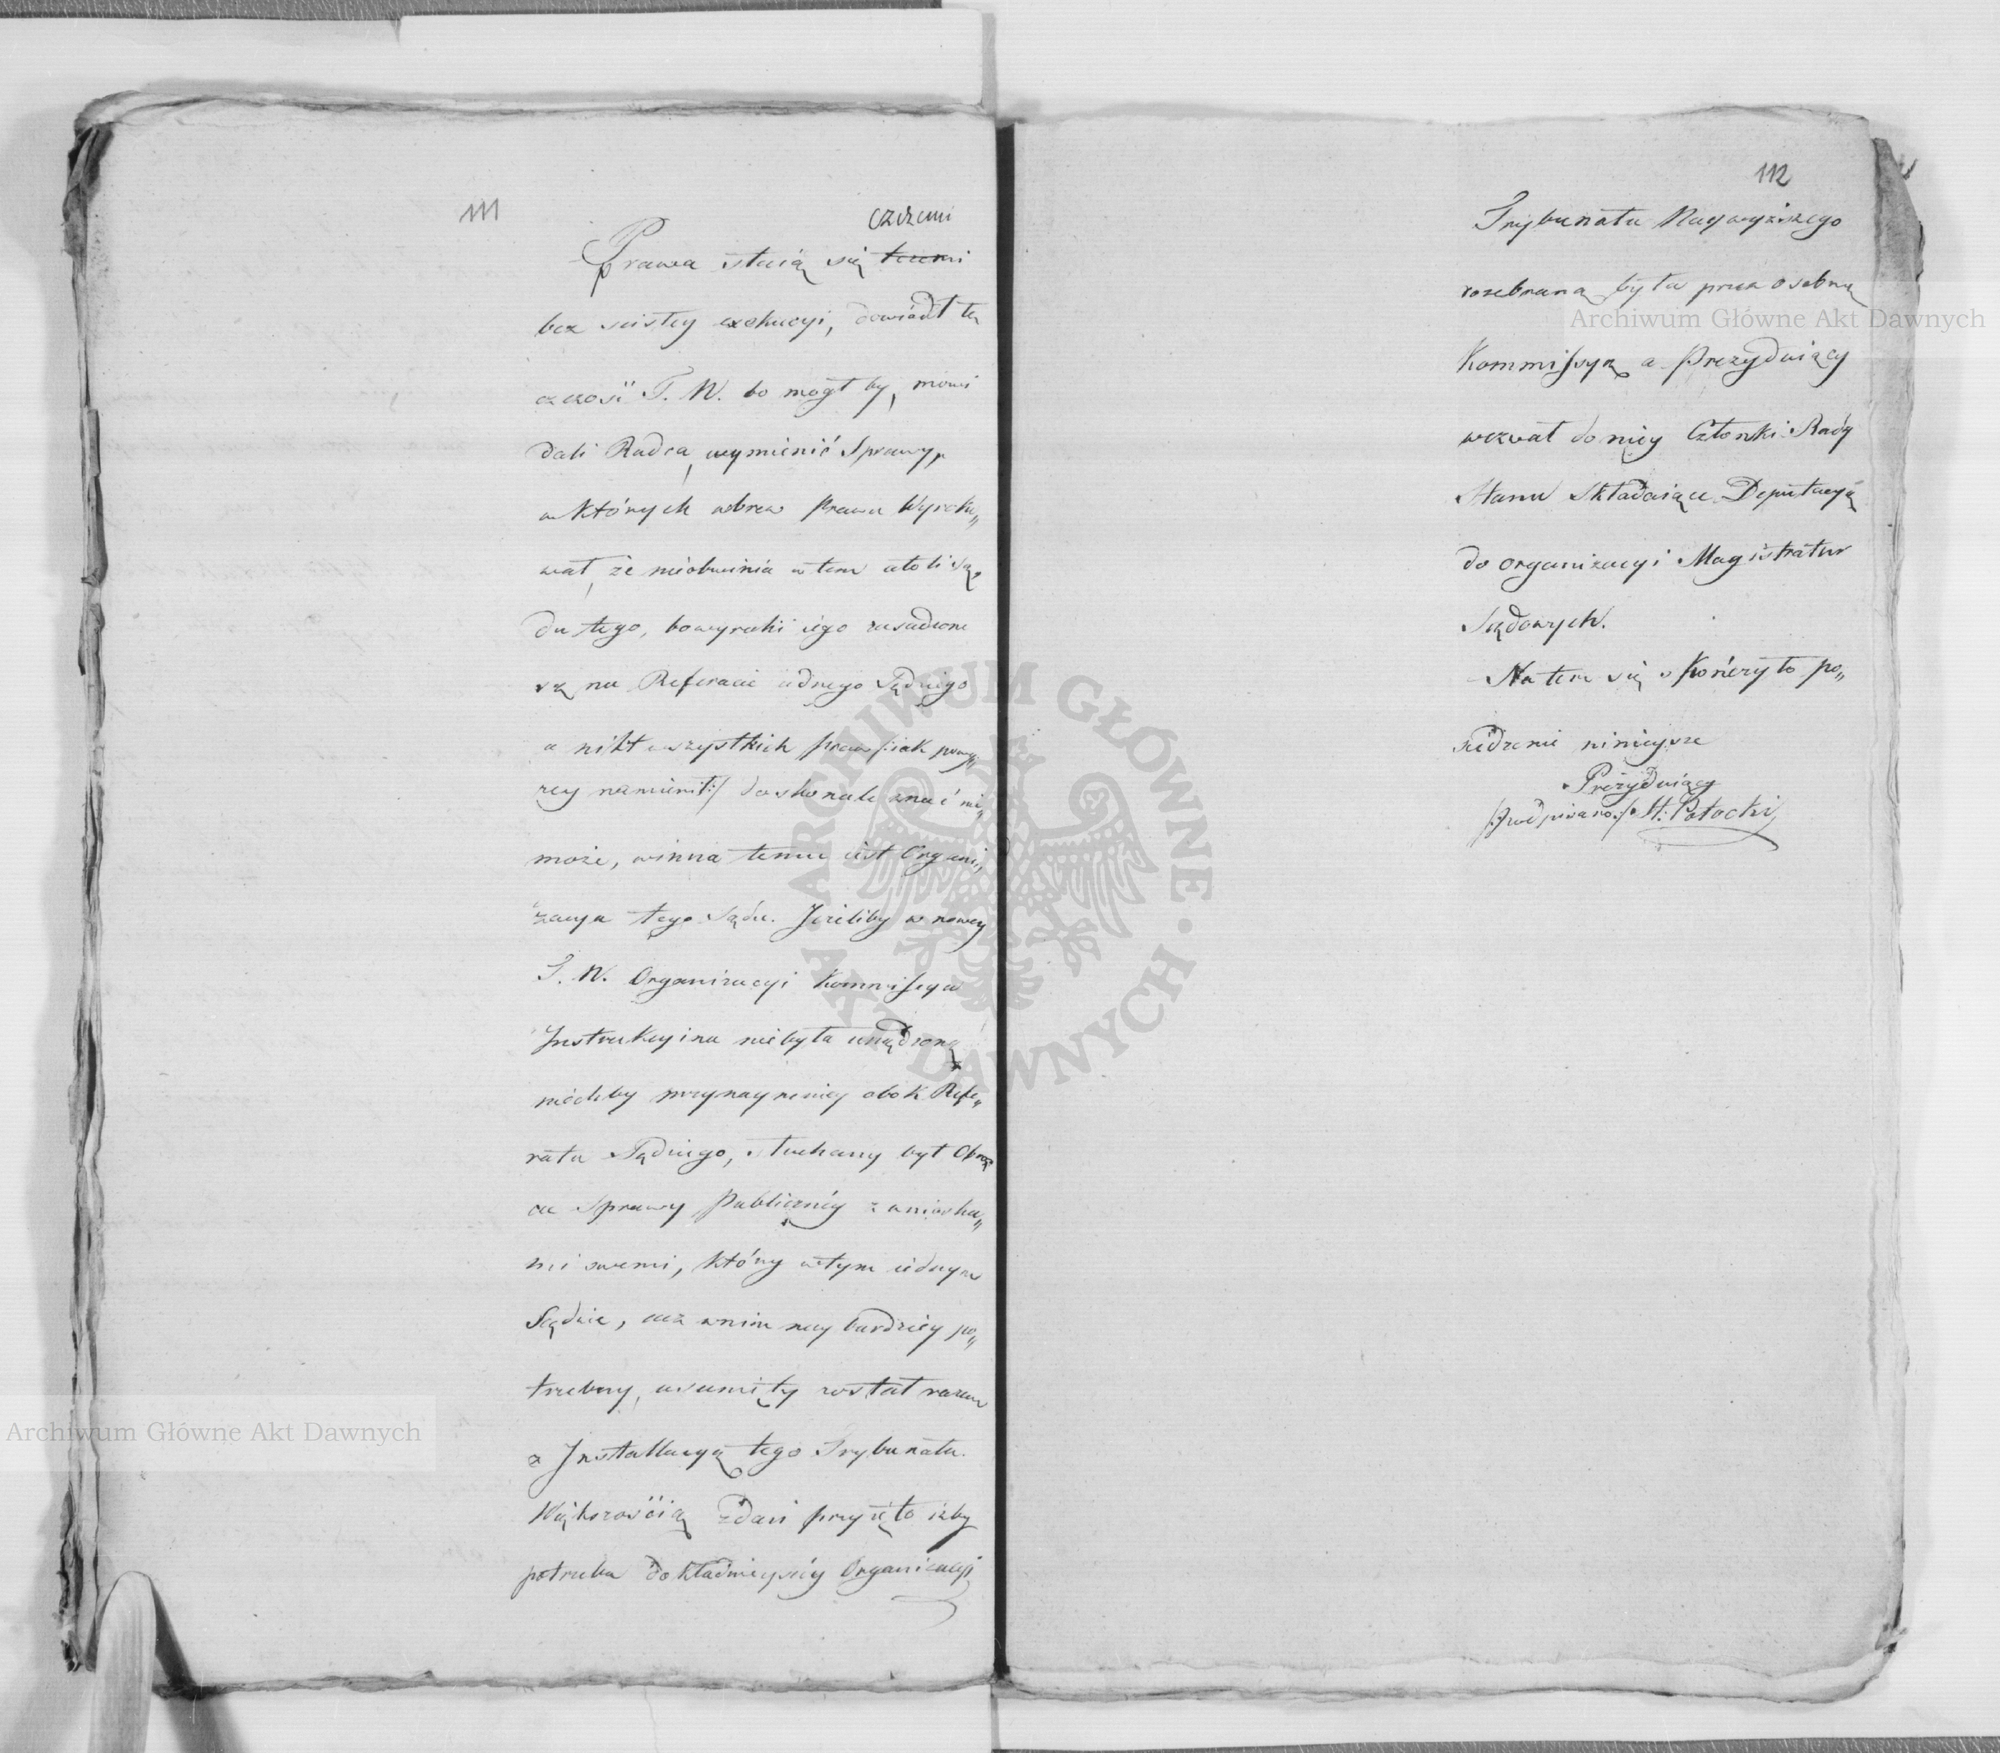 111
czczemi
Prawa staią się tczemi
bez scisłey exekucyi, dowiódł tę
czczość T. N. bo mogł by, mowi
dali Radca, wymienić Sprawy,
w których wbrew Prawu Wyroko„
wał, że nieobwinia w tem atoli Są„
du tego, bo wyroki iego zasadzone
są na Referacie iednego Sędziego
a nikt wszystkich praw /:iak powy„
żey namienił:/ doskonale znać nie„
może, winna temu iest Organi„
zacya tego Sądu. Jeżeliby w nowey
T. N. Organizacyi Kommissya
Jnstrukcyina niebyła urządzoną
niechby przynaymniey obok Refe„
rata Sędziego, słuchany był Obroń
ca Sprawy Publiczney z wnioska„
mi swemi, który w tym iednym
Sądzie, acz w nim naybardziey po„
trzebny, usunięty został razem
z Jnstallacyą tego Trybunału.
Większością zdań przyięto iżby
potrzeba dokładnieyszey Organizacyi
112
Trybunału Naywyższego
rozebraną była przez osobną
Kommissyą a Prezyduiący
wezwał do niey Członki Rady
Stanu składaiące Deputacyą
do organizacyi Magistratur
Sądowych.
Na tem się skończyło po„
siedzenie ninieysze
Prezyduiący
/:podpisano:/ St: Potocki
Archiwum Główne Akt Dawnych
Archiwum Główne Akt Dawnych
ARCHIWUM GŁÓWNE AKT DAWNYCH